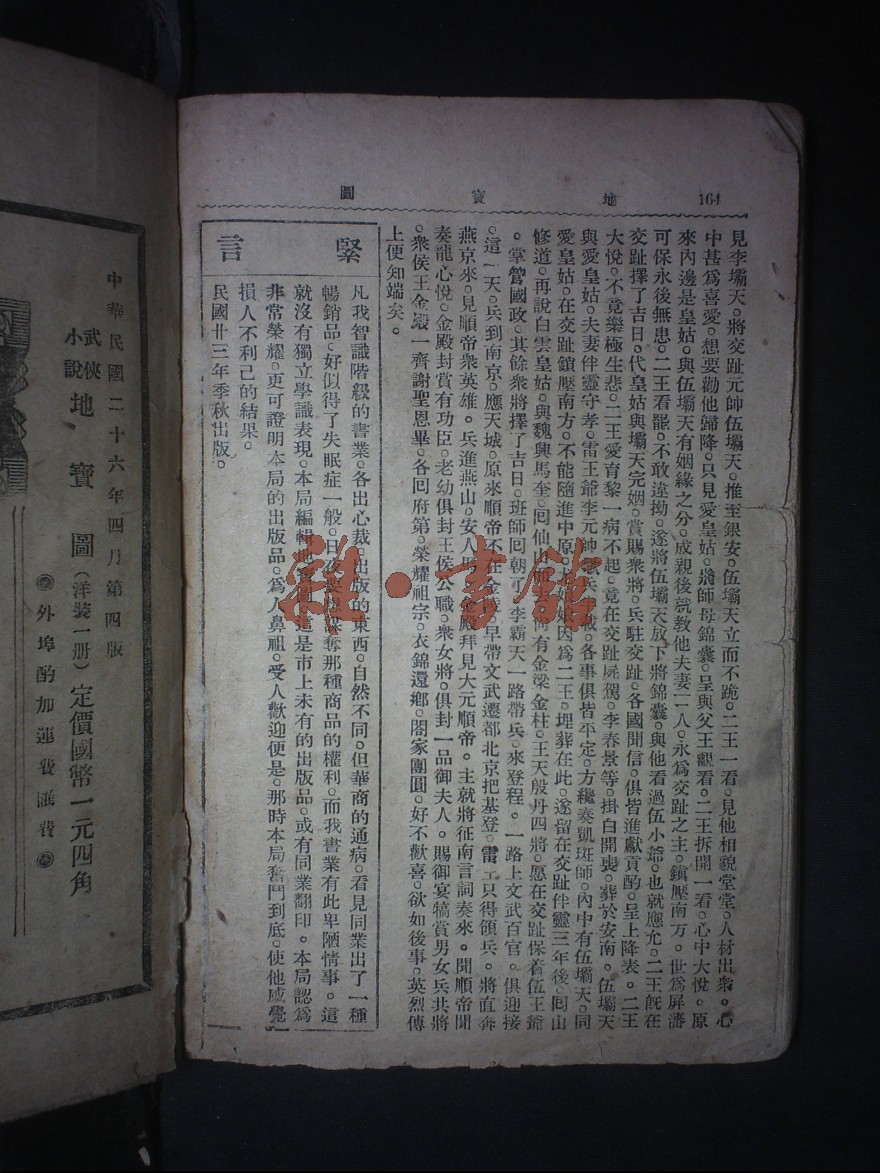 164
地寶圖
見李壩天。將交趾元帥伍壩天。推至銀安。伍壩天立而不跪。二王一看。見他相貌堂堂。人材出衆。心
中甚爲喜愛。想要勸他歸降。只見愛皇姑。將師母錦囊。呈與父王觀看。二王拆開一看。心中大悅。原
來內邊是皇姑。與伍壩天有姻緣之分。成親後就教他夫妻二人。永爲交趾之主。鎮壓南方。世爲屏藩
可保永後無患。二王看罷。不敢違拗。遂將伍壩天放下將錦囊。與他看過伍小爺。也就應允。二王旣在
交趾擇了吉日。代皇姑與壩天完姻。賞賜衆將。兵駐交趾。各國聞信。俱皆進獻貢酌。呈上降表。二王
大悅。不竟樂極生悲。二王愛育黎一病不起。竟在交趾屍駕。李春景等。掛白開喪。葬於安南。伍壩天
與愛皇姑。夫妻伴靈守孝。雷王爺李元帥 兵 戰。各事俱皆平定。方纔奏凱班師。內中有伍壩天。同
愛皇姑。在交趾鎮壓南方。不能隨進中原。 娘娘因爲二王。埋葬在此。遂留在交趾伴靈三年後。囘山
修道。再說白雲皇姑。與魏興馬奎。囘仙山 尚有金梁金柱。王天殷丹四將。愿在交趾保着伍王爺
。掌管國政。其餘衆將擇了吉日。班師囘朝 李霸天一路帶兵。來登程。一路上文武百官。俱迎接
。這一天。兵到南京。應天城。原來順帝不在金陵。早帶文武遷都北京把基登。雷王只得領兵。將直奔
燕京來。見順帝衆英雄。兵進燕山。安人馬。金殿拜見大元順帝。主就將征南言詞奏來。聞順帝聞
奏龍心悅。金殿封賞有功臣。老幼俱封王侯公職。衆女將。俱封一品御夫人。賜御宴犒賞男女兵共將
。衆侯王金殿一齊謝聖恩畢。各囘府第。榮耀祖宗。衣錦還鄉。閤家團圓。好不歡喜。欲如後事。英烈傳
上便知端矣。
緊言
凡我智識階級的書業。各出心裁。出版的東西。自然不同。但華商的通病。看見同業出了一種
暢銷品。好似得了失眠症一般。日夜 想謀奪那種商品的權利。而我書業有此卑陋情事。這
就沒有獨立學識表現。本局編輯地寶圖。這是市上未有的出版品。或有同業翻印。本局認爲
非常榮耀。更可證明本局的出版品。爲人鼻祖。受人歡迎便是。那時本局奮鬥到底。使他感覺
損人不利己的結果。
民國廿三年季秋出版。
中華民國二十六年四月第四版
武俠小說 地寶圖(洋裝一册)定價國幣一元四角
外埠酌加運費匯費
雜·書館